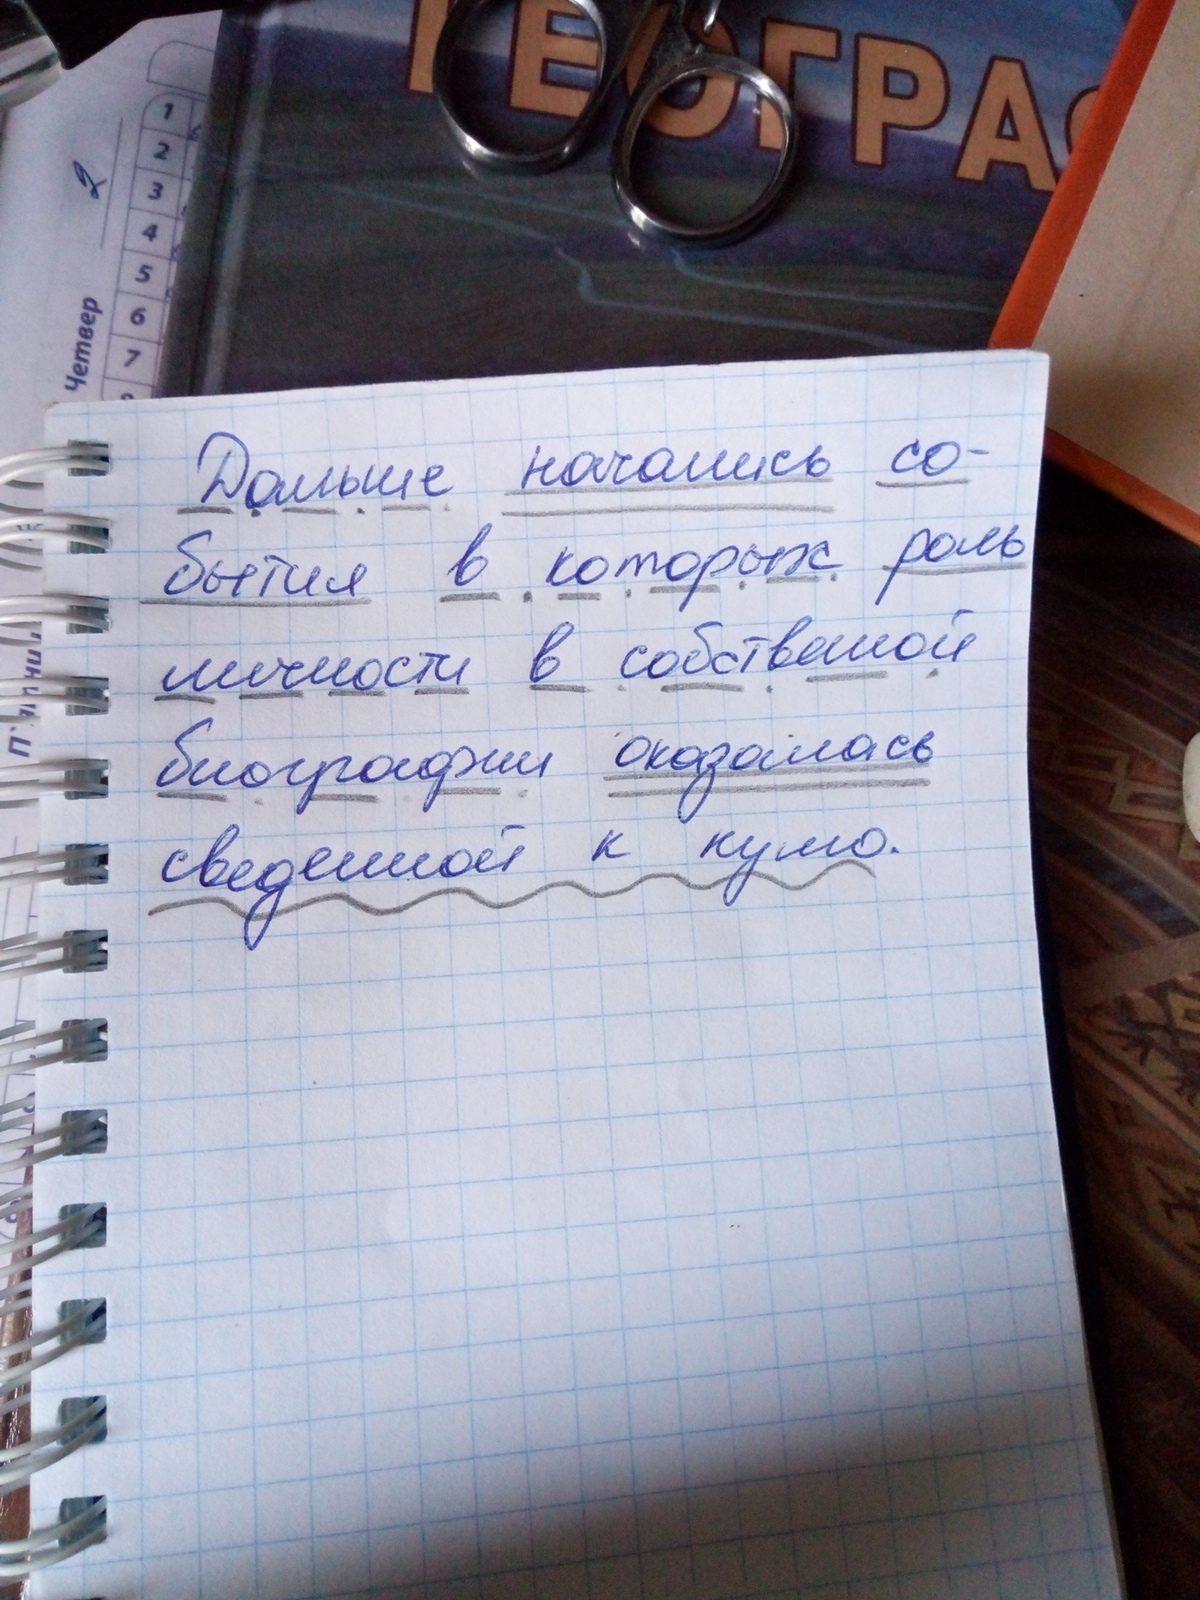 ГЕОГРАФ
1
2
2
3
4
5
6
7
Четвер
П'ятни
Дальше начались со-
бытия в которых роль
личности в собственой
биографии оказалась
сведенной к нулю.